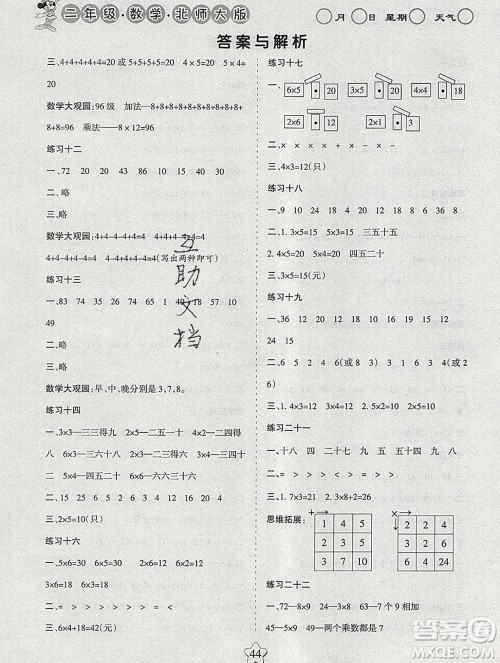 二年级·数学·北师大版
月 日 星期 天气
答案与解析
三、4+4+4+4+4=20或5+5+5+5=20 4×5=20 5×4=20
数学大观园:96级 加法——8+8+8+8+8+8+8+8+8+8+
8+8=96 乘法——8×12=96
练习十二
一、72 20 20 16 15 20 40 30 9
二、略
三、略
数学大观园:4+4-4-4+4=4 4+4-4+4-4=4
4+4-4-4+4=4(写出两种即可)
练习十三
一、83 74 35 100 49 18 57 10
49
二、略
三、略
数学大观园:早、中、晚分别是3,7,8。
练习十四
一、3×3—三三得九 2×5—二五一十 2×4—二四得
八 4×5—四五二十 6×5—五六三十
二、18 30 16 18 27 20
三、2×5=10(只)
练习十六
一、5×6=30 6×5=30 2×6=12 6×2=12
3×6=18 6×3=18
二、> > < > > <
三、4×6+18=42(元)
练习十七
一、6×5 • 30 5×4 • 20 4×5 • 20 3×6 • 18
2×6 • 12 2×1 • 3
二、× × ×
三、4×3=12(只)
练习十八
一、9 12 9 15 18 24 8 6 3 6
二、1. 3×5=15 5×3=15 三五十五
2. 4×5=20 5×4=20 四五二十
三、3×5=15(元)
练习十九
一、16 12 30 20 18 9 15 12
24 15
二、4 2 3 5 6 2(或6) 4 5 8(或2
6)
三、1. 4×3=12 2. 3×2=6
练习二十一
一、十八 四 二十七 九 五 四五 九 八
二、= > > < > >
三、1. 7×3=21 2. 3×8+2=26
思维拓展:
+→ ×→
1 4 5
2 5 7
3 9 12
4 6 24
2 3 6
8 18
练习二十二
一、72—8×9 24—4×6 63—得数是63
45—5×9 49—两个乘数都是7
互助文档
44
答案圈
MXQE.COM